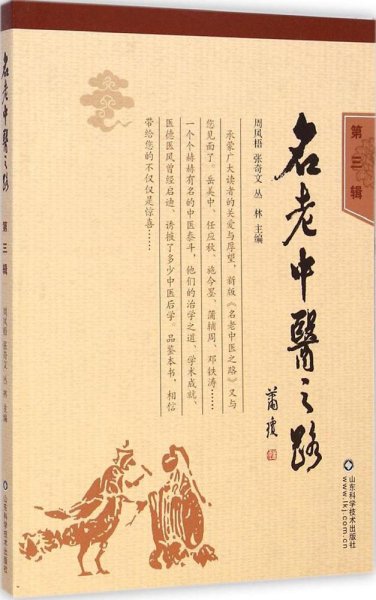 名老中醫之路
第三辑
周凤梧 张奇文 丛 林 主编
山东科学技术出版社
第三辑
名老中醫之路
萧琼
周凤梧 张奇文 丛 林 主编
承蒙广大读者的关爱与厚望，新版《名老中医之路》又与
您见面了。岳美中、任应秋、施今墨、蒲辅周、邓铁涛……
一个个赫赫有名的中医泰斗，他们的治学之道、学术成就、
医德医风曾经启迪、诱掖了多少中医后学。品鉴本书，相信
带给您的不仅仅是惊喜……
山东科学技术出版社
www.lkj.com.cn